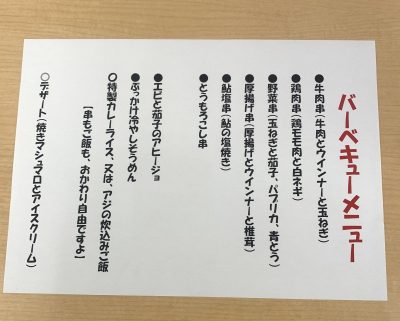 バーベキューメニュー
●牛肉串(牛肉とウインナーと玉ねぎ)
●鶏肉串(鶏モモ肉と白ネギ)
●野菜串(玉ねぎと茄子、パプリカ、青とう)
●厚揚げ串(厚揚げとウインナーと椎茸)
●鮎塩串(鮎の塩焼き)
●とうもろこし串
●エビと茄子のアヒージョ
●ぶっかけ冷やしそうめん
○特製カレーライス、又は、アジの炊込みご飯
【串もご飯も、おかわり自由ですよ】
○デザート(焼きマシュマロとアイスクリーム)